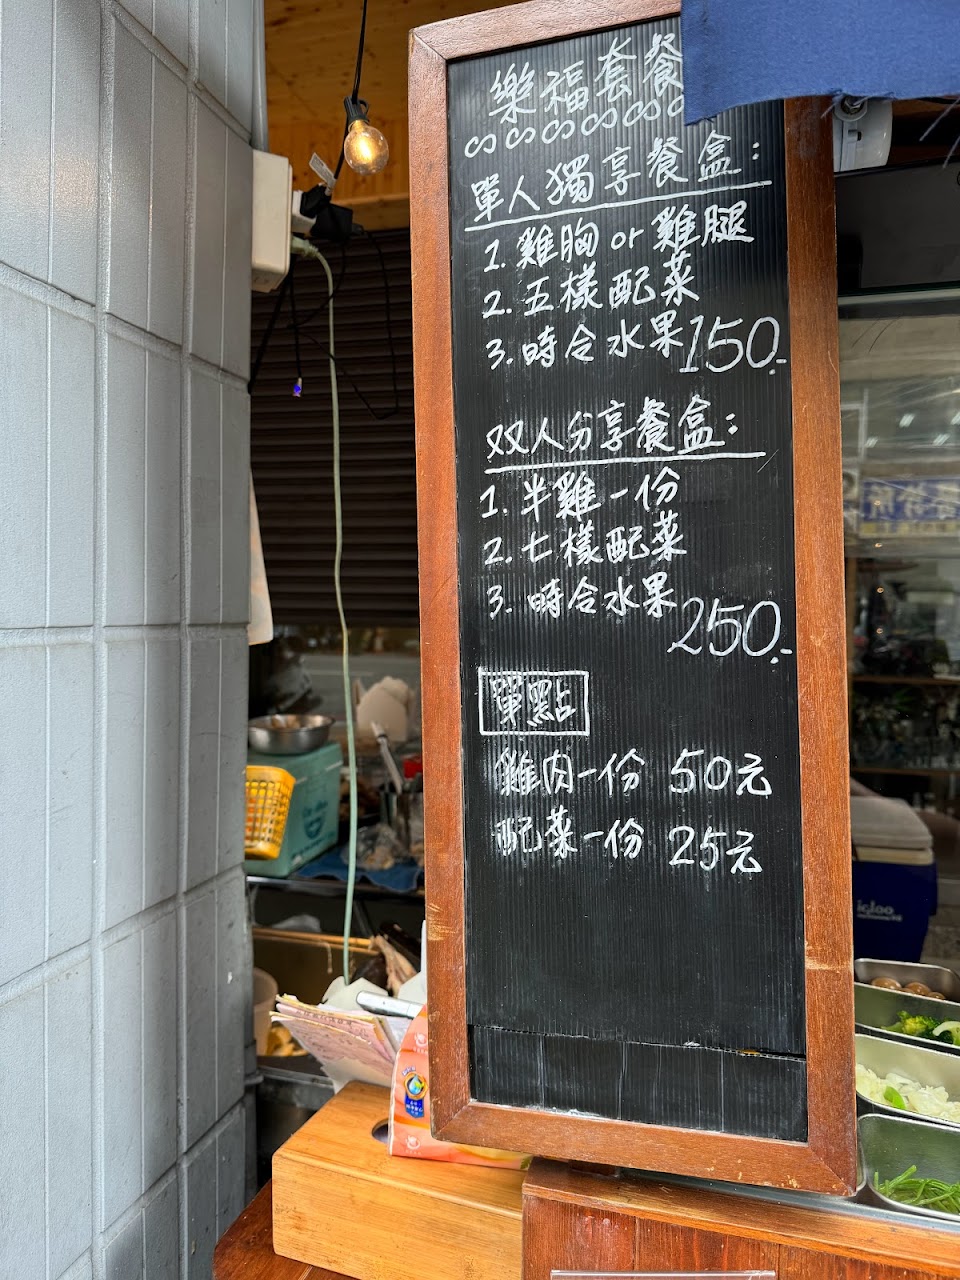 樂福套餐
單人獨享餐盒:
1. 雞胸 or 雞腿
2. 五樣配菜
3. 時令水果 150.-
双人分享餐盒:
1. 半雞一份
2. 七樣配菜
3. 時令水果 250.-
單點
雞肉一份 50元
配菜一份 25元
igloo